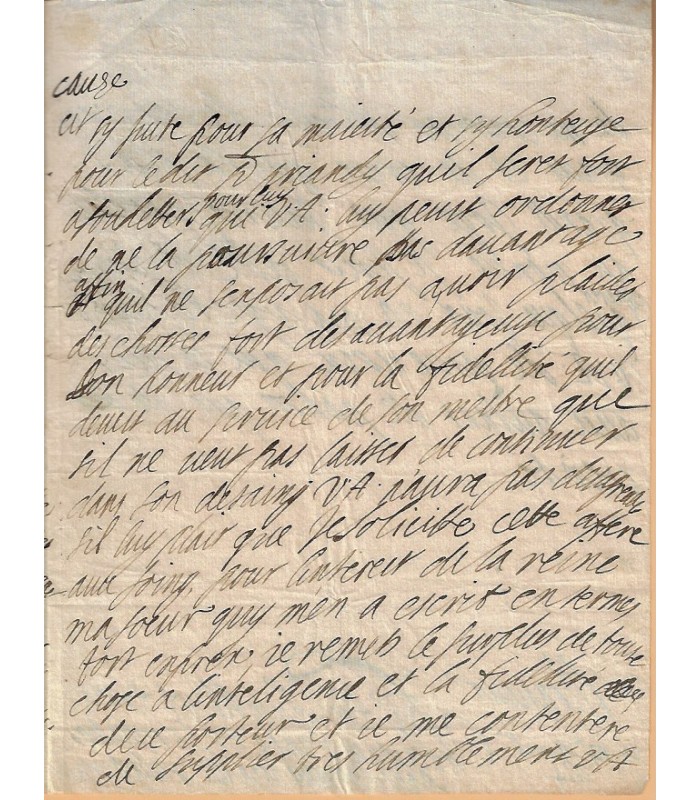 cause
est sy juste pour sa maiesté et sy honteuse
pour le dit quil seret fort
a pour luy que V.A. luy peut ordonner
de ne la poursuivre pas dauantage
affin quil ne sexposait pas auoir plaider
des chosses fort desauantageuse pour
son honneur et pour la fidellité quil
deuuit au seruice de son mestre que
sil ne veut pas laisser de continuer
dans son desaing V.A. naura pas desagreable
sil luy plait que je solicitte cette afere
aue soing pour linterest de la reine
ma soeur quy men a escrit en termes
fort expres, ie remets le surplus de toute
chose a linteligence et la fidelité
de ce porteur et ie me contentere
de supplier tres humblement V.A